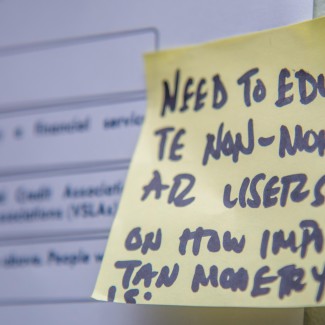 a financial servic
l Credit Associati
ssociations (VSLAs
above. People w
NEED TO EDU
TE NON-MON
AD USERS
ON HOW IMPO
TAN MONETRY
IS: